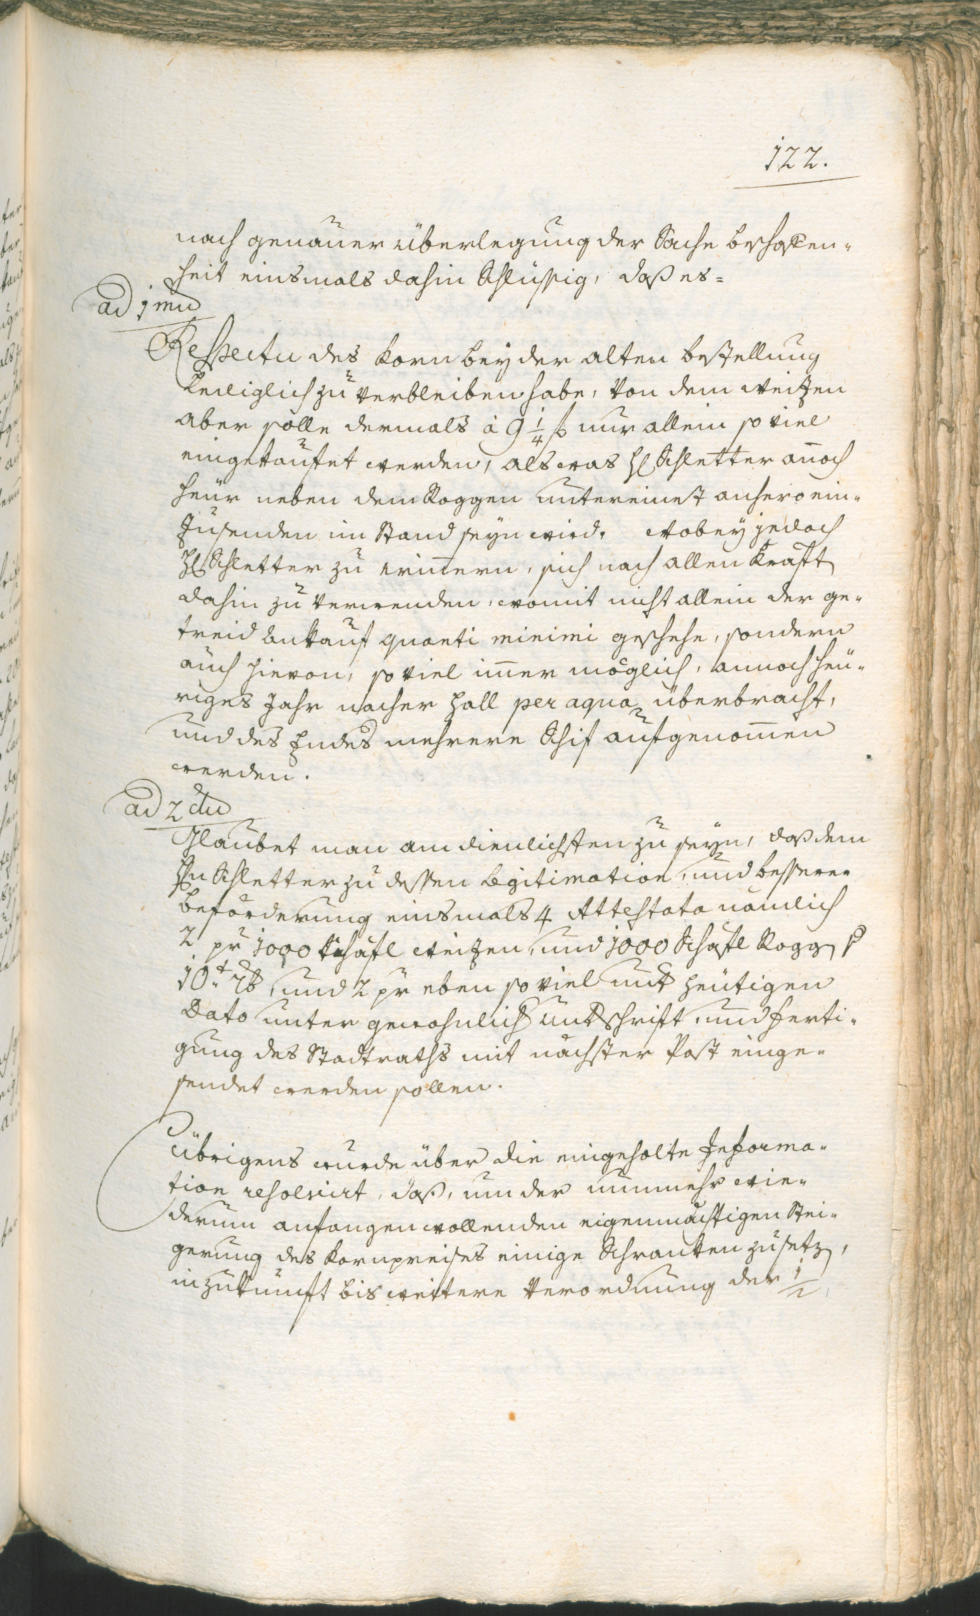 122.
nach genauer überlegung der Sache beschaffen-
heit einsmals dahin schlüssig, daß es=
ad 1mu
Respectu des Korn bey der alten bestellung
lediglich zu verbleiben habe, von dem Weitzen
aber solle dermals à 9 1/4 f nur allein so viel
eingekaufet werden, als was H Schletter annoch
heür neben dem Roggen untereinst anhero ein-
zusenden im Stand seyn wird. Wobey jedoch
H Schletter zu erinnern, sich nach allen Kräft
dahin zu verwenden, womit nicht allein der ge-
treid Ankauf quanti minimi geschehe, sondern
auch hievon, so viel immer möglich, annoch heü-
riges Jahr nacher Hall per aqua überbracht,
und des Endes mehrere Schif aufgenommen
werden.
ad 2du
Glaubet man am dienlichsten zu seyn, daß dem
Hn Schletter zu dessen Legitimation, und bessere
beförderung einsmals 4 Attestata nämlich
2 pr 1000 Schäfl Weitzen, und 1000 Schäfl Rogg
10t 7b, und 2 pr eben so viel mit heütigen
Dato unter gewohnlich Undschrift und ferti-
gung des Stadtraths mit nächster Post einge-
sendet werden sollen.
übrigens wurde über die eingeholte Informa-
tion resolvirt, daß, um der nunmehr wie-
derum anfangen wollenden eigenmächtigen Stei-
gerung des Kornpreises einige Schranken zusetz,
in zukunft bis weitere Verordnung der 1/2